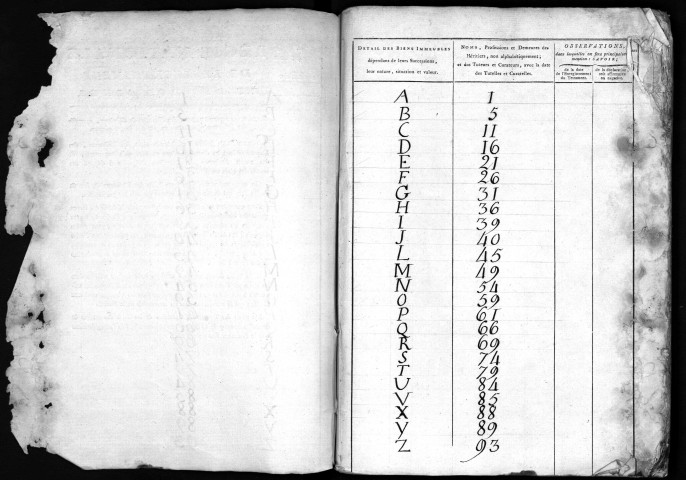 DETAIL DES BIENS IMMEUBLES
dépendans de leurs Successions,
leur nature, situation et valeur.
NOMS, Professions et Demeures des
Héritiers, non alphabétiquement;
et des Tuteurs et Curateurs, avec la date
des Tutelles et Curatelles.
OBSERVATIONS,
dans lesquelles on fera principalement
mention: SAVOIR,
de la date
de l'Enregistrement
du Testament.
de la déclaration
A 1
B 5
C 11
D 16
E 21
F 26
G 31
H 36
I 39
J 40
L 45
M 49
N 54
O 59
P 61
Q 66
R 69
S 74
T 79
U 84
V 85
X 88
Y 89
Z 93